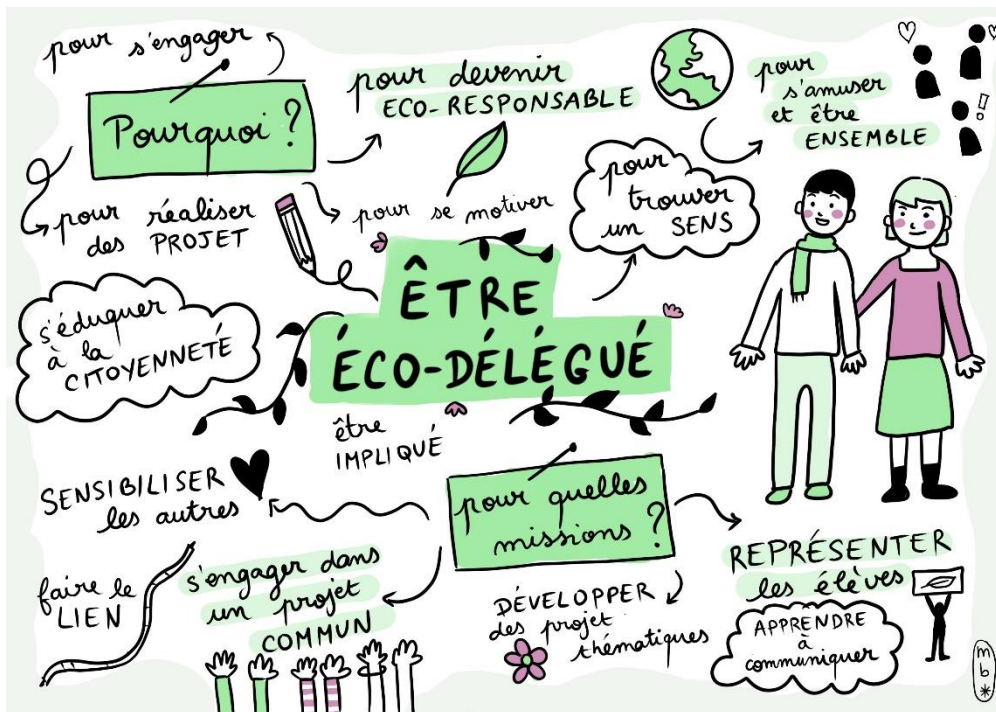 pour s'engager
Pourquoi ?
pour devenir
ECO-RESPONSABLE
pour
s'amuser
et être
ENSEMBLE
pour réaliser
des PROJET
pour se motiver
pour
trouver
un SENS
s'éduquer
à la
CITOYENNETÉ
ÊTRE
ÉCO-DÉLÉGUÉ
être
IMPLIQUÉ
pour quelles
missions ?
SENSIBILISER
les autres
faire le
LIEN
s'engager dans
un projet
COMMUN
DÉVELOPPER
des projet
thématiques
REPRÉSENTER
les élèves
APPRENDRE
à
communiquer
!
mb*